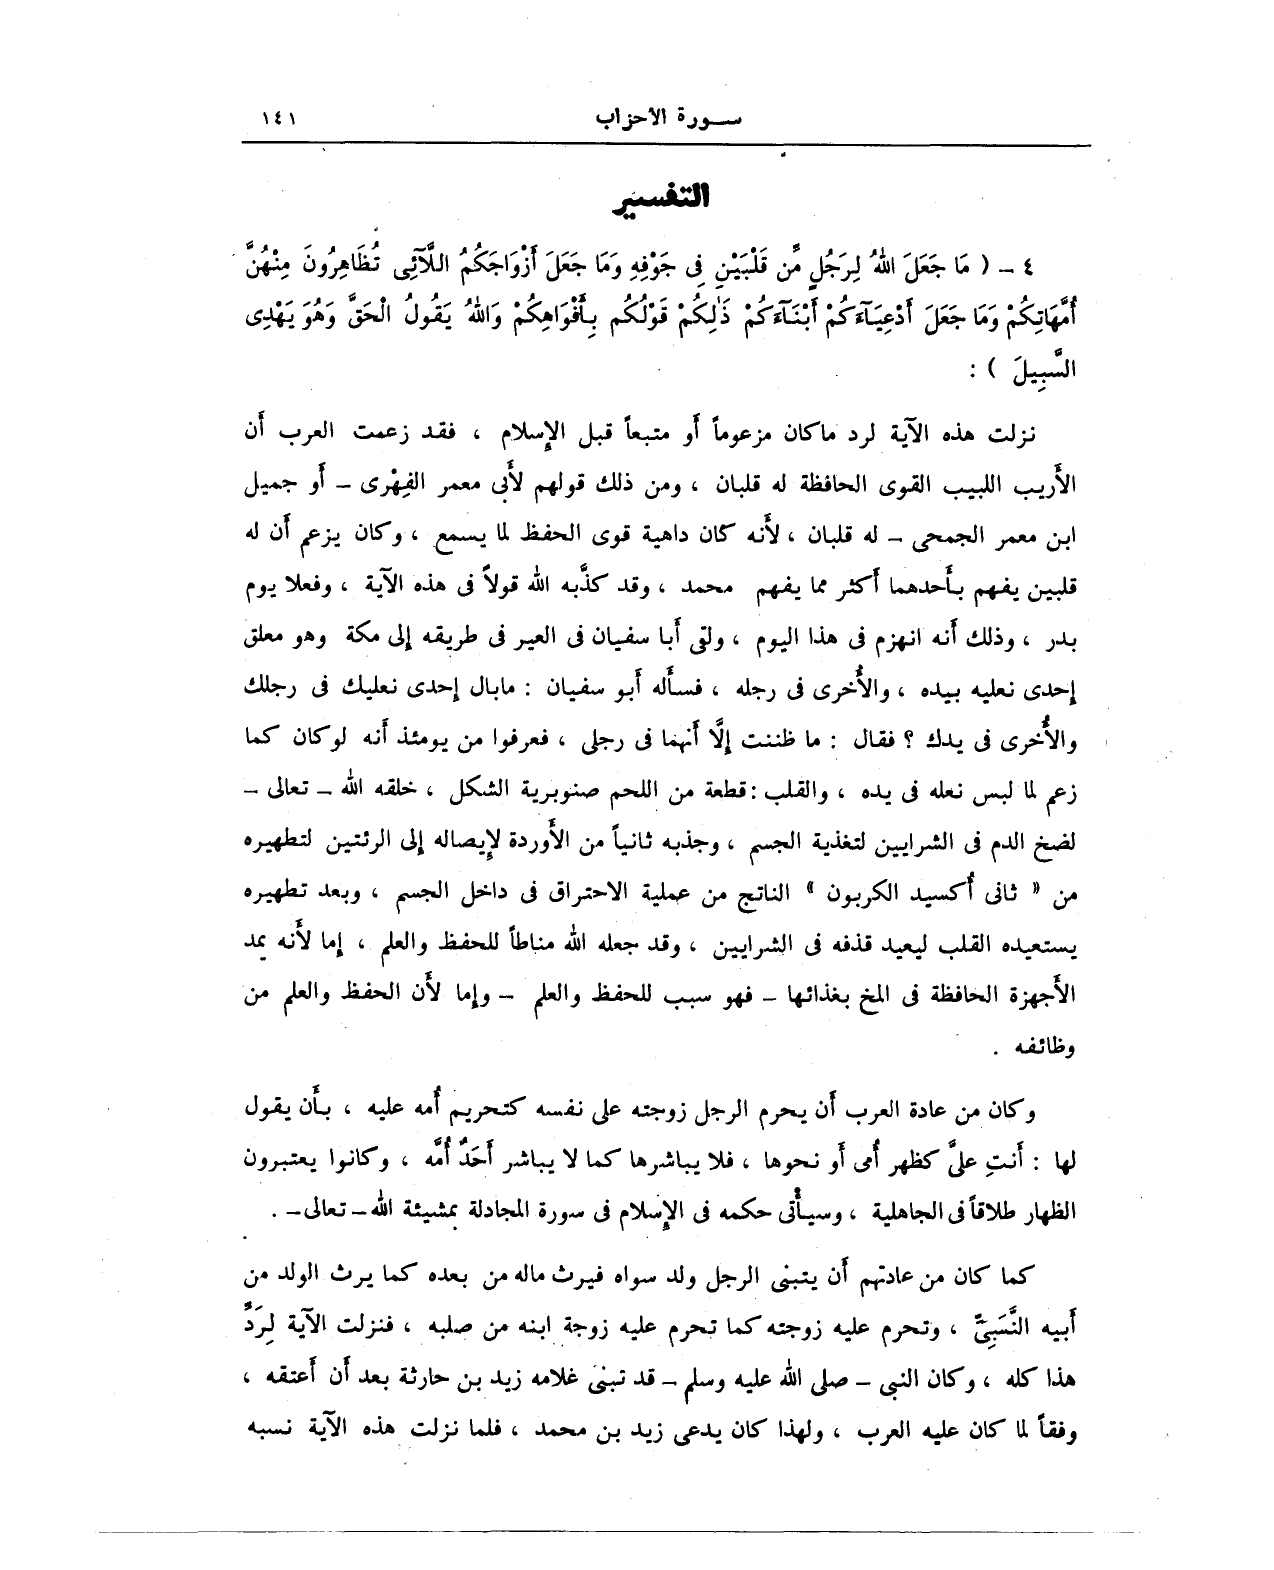 سورة الأحزاب ١٤١
التفسير
٤ – ( مَا جَعَلَ اللهُ لِرَجُلٍ مِّن قَلْبَيْنِ فِى جَوْفِهِ وَمَا جَعَلَ أَزْوَاجَكُمُ اللَّآئِى تُظَاهِرُونَ مِنْهُنَّ
أُمَّهَاتِكُمْ وَمَا جَعَلَ أَدْعِيَآءَكُمْ أَبْنَآءَكُمْ ذَٰلِكُمْ قَوْلُكُم بِأَفْوَاهِكُمْ وَاللهُ يَقُولُ الْحَقَّ وَهُوَ يَهْدِى
السَّبِيلَ ) :
نزلت هذه الآية لرد ماكان مزعوماً أو متبعاً قبل الإسلام ، فقد زعمت العرب أن
الأريب اللبيب القوى الحافظة له قلبان ، ومن ذلك قولهم لأبى معمر الفِهْرى – أو جميل
ابن معمر الجمحى – له قلبان ، لأنه كان داهية قوى الحفظ لما يسمع ، وكان يزعم أن له
قلبين يفهم بأحدهما أكثر مما يفهم محمد ، وقد كذَّبه الله قولاً فى هذه الآية ، وفعلا يوم
بدر ، وذلك أنه انهزم فى هذا اليوم ، ولقى أبا سفيان فى العير فى طريقه إلى مكة وهو معلق
إحدى نعليه بيده ، والأُخرى فى رجله ، فسأله أبو سفيان : مابال إحدى نعليك فى رجلك
والأُخرى فى يدك ؟ فقال : ما ظننت إلَّا أنهما فى رجلى ، فعرفوا من يومئذ أنه لو كان كما
زعم لما لبس نعله فى يده ، والقلب : قطعة من اللحم صنوبرية الشكل ، خلقه الله – تعالى –
لضخ الدم فى الشرايين لتغذية الجسم ، وجذبه ثانياً من الأوردة لإيصاله إلى الرئتين لتطهيره
من « ثانى أُكسيد الكربون » الناتج من عملية الاحتراق فى داخل الجسم ، وبعد تطهيره
يستعيده القلب ليعيد قذفه فى الشرايين ، وقد جعله الله مناطاً للحفظ والعلم ، إما لأنه يمد
الأجهزة الحافظة فى المخ بغذائها – فهو سبب للحفظ والعلم – وإما لأن الحفظ والعلم من
وظائفه .
وكان من عادة العرب أن يحرم الرجل زوجته على نفسه كتحريم أُمه عليه ، بأن يقول
لها : أنتِ علىَّ كظهر أُمى أو نحوها ، فلا يباشرها كما لا يباشر أحَدٌ أُمَّه ، وكانوا يعتبرون
الظهار طلاقاً فى الجاهلية ، وسيأتى حكمه فى الإسلام فى سورة المجادلة بمشيئة الله – تعالى – .
كما كان من عادتهم أن يتبنى الرجل ولد سواه فيرث ماله من بعده كما يرث الولد من
أبيه النَّسَبِىِّ ، وتحرم عليه زوجته كما تحرم عليه زوجة ابنه من صلبه ، فنزلت الآية لِرَدِّ
هذا كله ، وكان النبى – صلى الله عليه وسلم – قد تبنى غلامه زيد بن حارثة بعد أن أعتقه ،
وفقاً لما كان عليه العرب ، ولهذا كان يدعى زيد بن محمد ، فلما نزلت هذه الآية نسبه